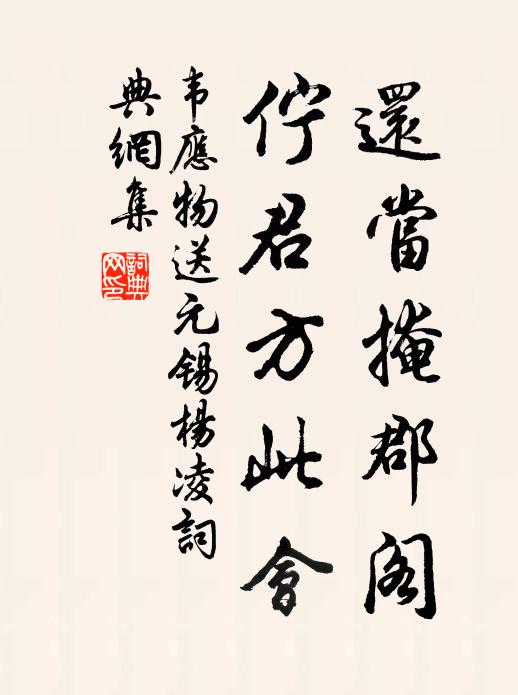 還當掩郡閣
佇君方此會
韦應物送元锡楊凌詞
典網集
詞典网印